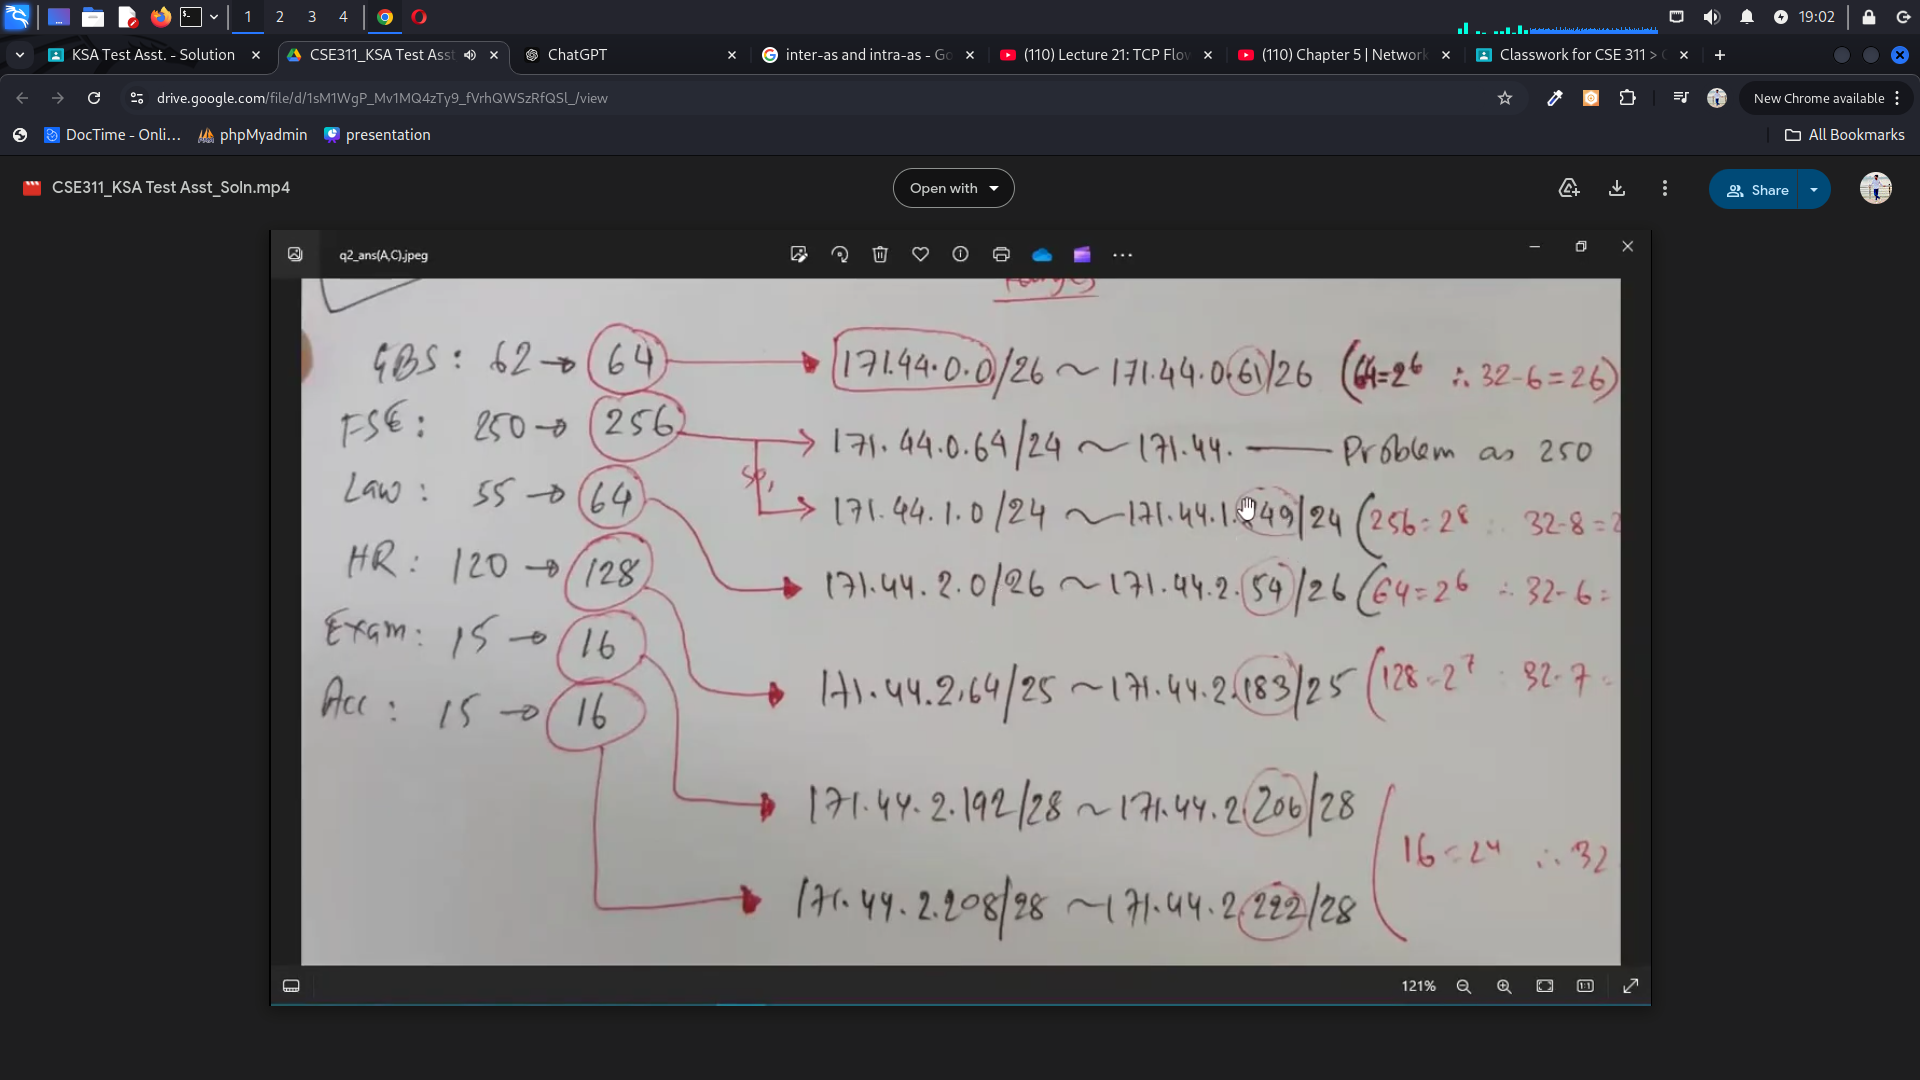 1 2 3 4 19:02
KSA Test Asst. - Solution CSE311_KSA Test Asst ChatGPT inter-as and intra-as - Go (110) Lecture 21: TCP Flo (110) Chapter 5 | Network Classwork for CSE 311 >
drive.google.com/file/d/1sM1WgP_Mv1MQ4zTy9_fVrhQWSzRfQSl_/view New Chrome available
DocTime - Onli... phpMyadmin presentation All Bookmarks
CSE311_KSA Test Asst_Soln.mp4 Open with Share
q2_ans(A,C).jpeg
GBS : 62 → 64 171.44.0.0/26 ~ 171.44.0.61/26 (64=2⁶ ∴ 32-6=26)
FSE : 250 → 256 171.44.0.64/24 ~ 171.44. —— Problem as 250
so, 171.44.1.0/24 ~ 171.44.1.249/24 (256=2⁸ ∴ 32-8=2
Law : 55 → 64 171.44.2.0/26 ~ 171.44.2.54/26 (64=2⁶ ∴ 32-6=
HR : 120 → 128 171.44.2.64/25 ~ 171.44.2.183/25 (128=2⁷ ∴ 32-7=
Exam : 15 → 16 171.44.2.192/28 ~ 171.44.2.206/28
Acc : 15 → 16 171.44.2.208/28 ~ 171.44.2.222/28 (16=2⁴ ∴ 32
121%